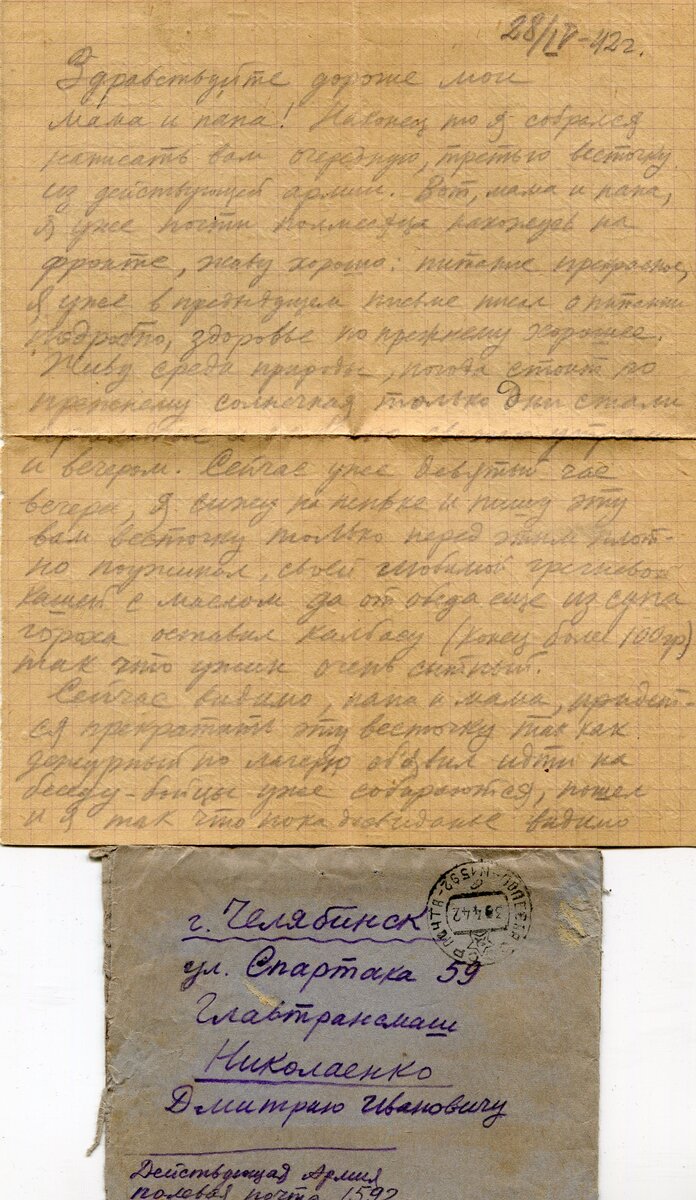 28/IV-42г.
Здравствуйте дорогие мои
мама и папа! Наконец то я собрался
написать вам очередную, третью весточку
из действующей армии. Вот, мама и папа,
я уже почти полмесяца нахожусь на
фронте, живу хорошо: питание прекрасное,
я уже в предыдущем письме писал о питании
подробно, здоровье по прежнему хорошее.
Живу среди природы, погода стоит по
прежнему солнечная только дни стали
и вечером. Сейчас уже девятый час
вечера, я сижу на пеньке и пишу эту
вам весточку только перед этим плот-
но поужинал, своей любимой гречневой
кашей с маслом да от обеда еще из супа
гороха оставил калбасу (конец более 100 гр)
так что ужин очень сытный.
Сейчас видимо, папа и мама, придет-
ся прекратить эту весточку так как
дежурный по лагерю обявил идти на
беседу - бойцы уже собираются, пошел
и я так что пока досвиданье видимо
г. Челябинск
ул. Спартака 59
Главтрансмаш
Николаенко
Дмитрию Ивановичу
Действующая Армия
полевая почта 1592